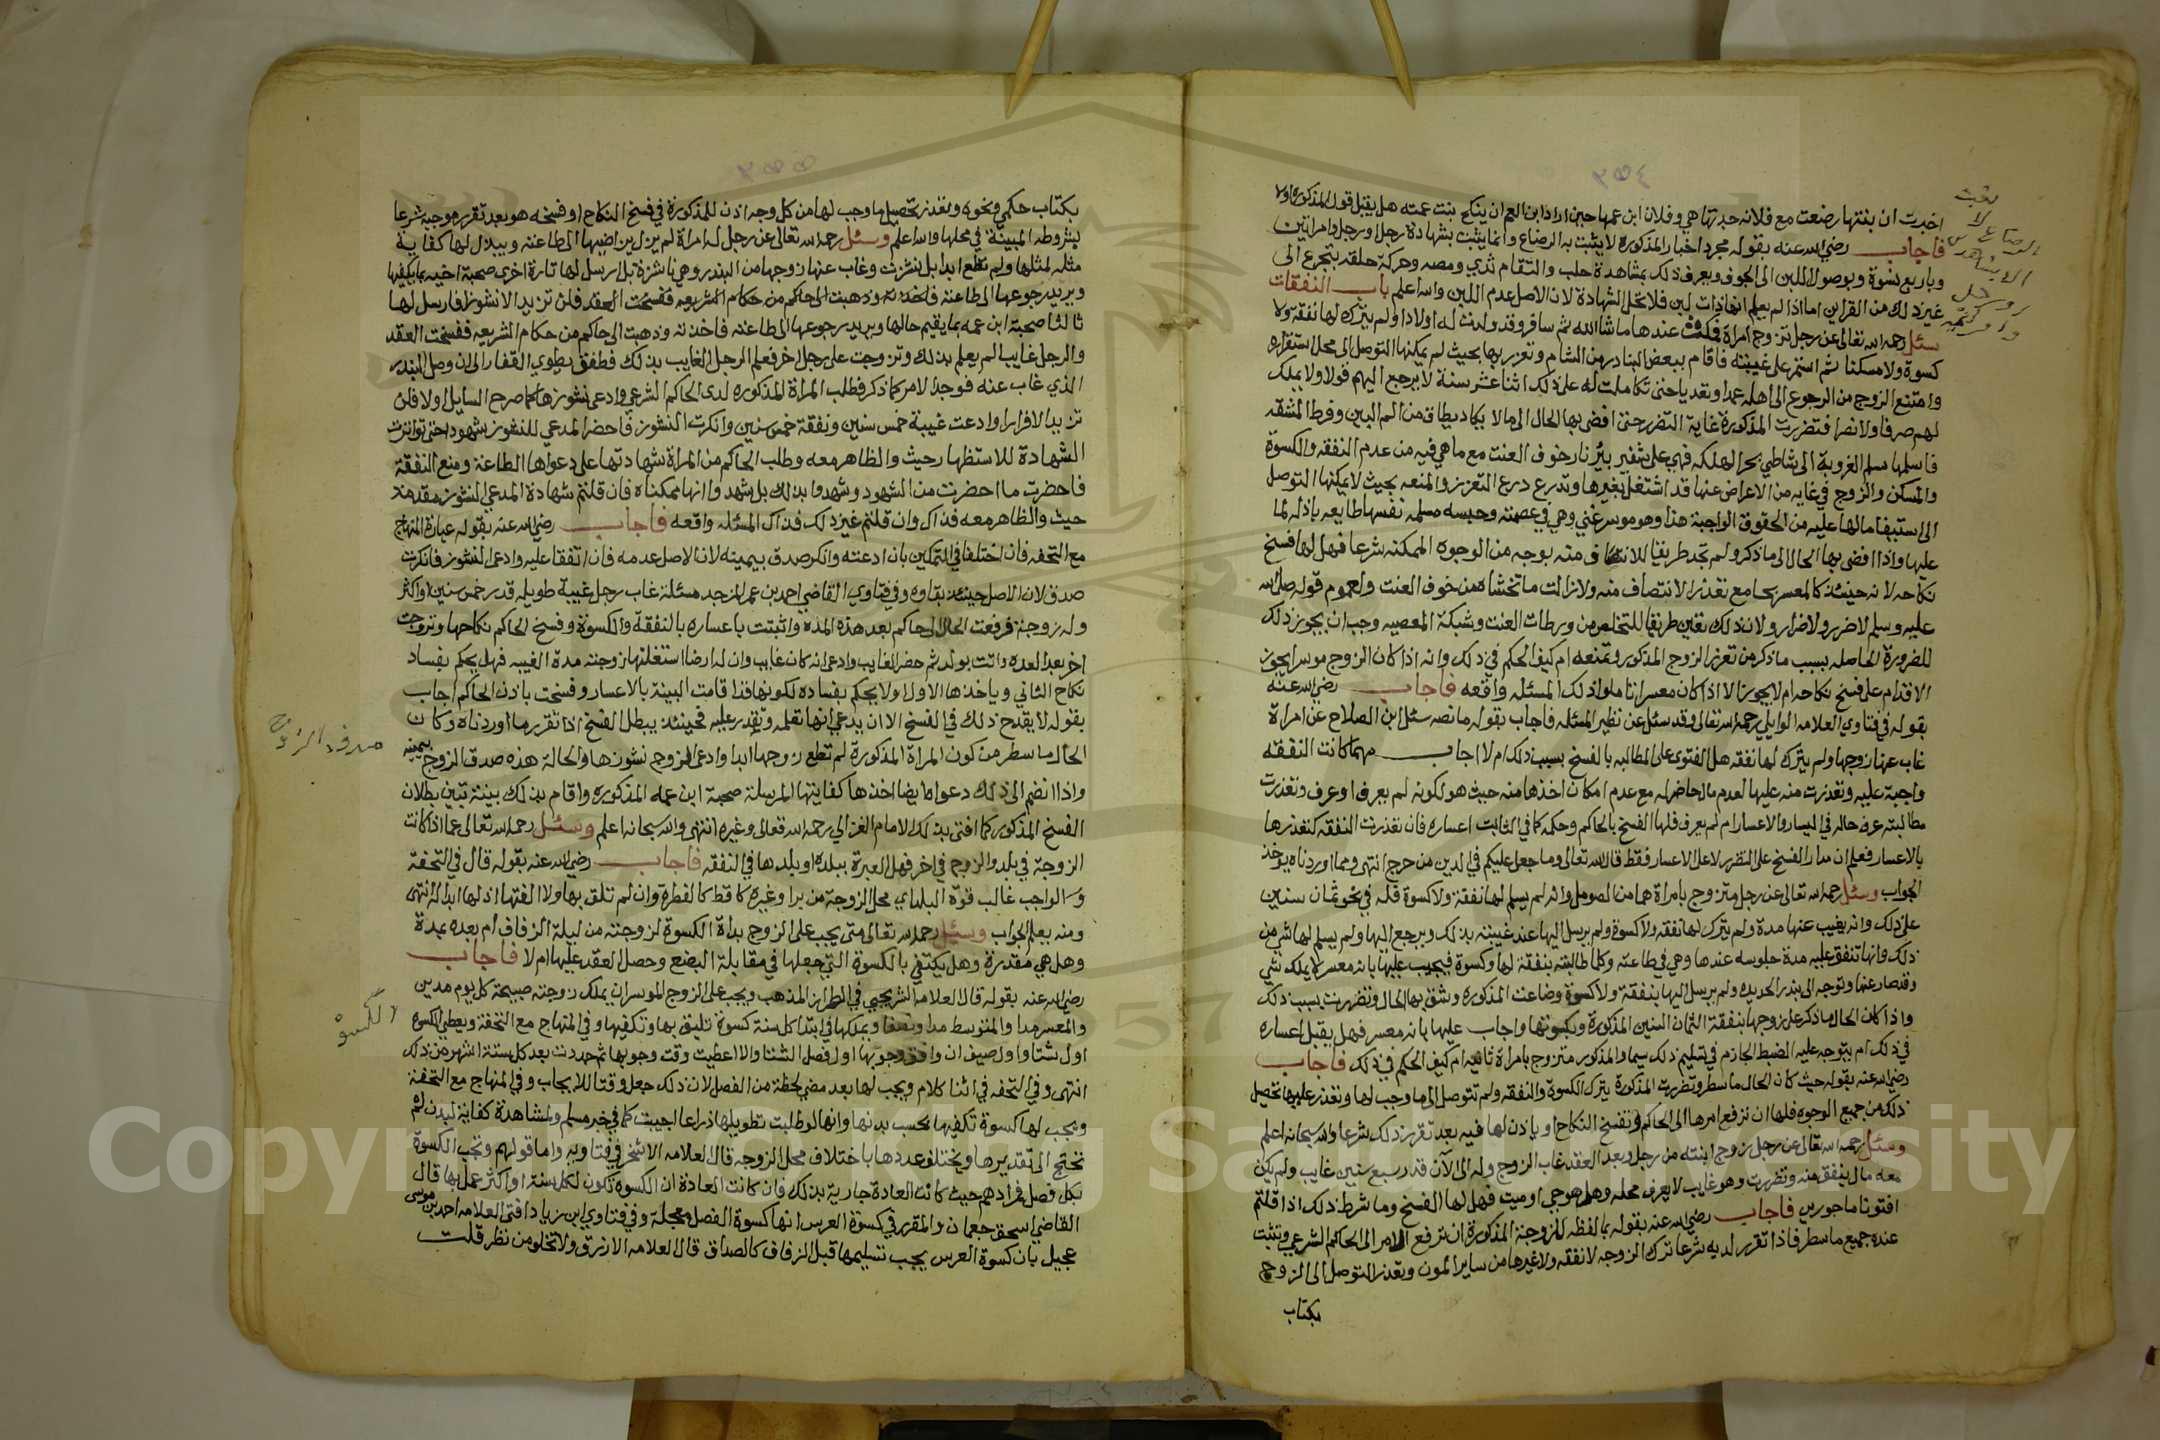 ٣٥٤
اخبرت ان بنتها رضعت مع فلانه جدتها هي وفلان ابن عمها حين اراد ابن العم ان ينكح بنت عمته هل يقبل قول المذكوره اولا
فاجاب رضي الله عنه بقوله مجرد اخبار المذكورة لا يثبت به الرضاع وانما يثبت بشهادة رجل او رجل وامراتين
وباربع نسوة وبوصول اللبن الى الجوف ويعرف ذلك بمشاهدة حلب والتقام ثدي ومصه وحركة حلقه بتجرع الى
غير ذلك من القراين اما اذا لم يعلم انها ذات لبن فلا تحل الشهادة لان الاصل عدم اللبن والله اعلم باب النفقات
سئل رحمه الله تعالى عن رجل تزوج امراة فمكث عندها ما شا الله ثم سافر وقد ولدت له اولادا ولم يترك لها نفقة ولا
كسوة ولا مسكنا ثم استمر على غيبته فاقام ببعض البنادر من الشام وتعزر بها بحيث لم يمكنها التوصل الى محل استقراره
وامتنع الزوج من الرجوع الى اهله عمدا وتعديا حتى تكاملت له على ذلك اثنا عشر سنة لا يرجع اليهم قولا ولا يملك
لهم صرفا ولا نصرا فتضررت المذكورة غاية التضرر حتى افضى بها الحال الى ما لا يكاد يطاق من الم البين وفرط المشقه
فاسلمها مسلم الغروبة الى شاطي بحر الهلكه فهي على شفير بئر نار خوف العنت مع ما هي فيه من عدم النفقه والكسوة
والمسكن والزوج في غايه من الاعراض عنها قد اشتغل بغيرها وتدرع درع التعزز والمنعه بحيث لا يمكنها التوصل
الى استيفا ما لها عليه من الحقوق الواجبة هذا وهو موسر غني وهي في عصمته وحبسه مسلمه نفسها طايعه باذله لما
عليها واذا افضى بها الحال الى ما ذكر ولم تجد طريقا للانتصاف منه بوجه من الوجوه الممكنه شرعا فهل لها فسخ
نكاحه لانه حينئذ كالمعسر بجامع تعذر الانتصاف منه ولازالت ما تخشاه من خوف العنت ولعموم قوله صلى الله
عليه وسلم لا ضرر ولا ضرار ولان ذلك تعين طريقا للتخلص من ورطات العنت وشبكة المعصيه وجب ان يجوز ذلك
للضرورة الحاصله بسبب ما ذكر من تعزز الزوج المذكور وتمنعه ام كيف الحكم في ذلك وانه اذا كان الزوج موسرا يجوز
الاقدام على فسخ نكاحه ام لا يجوز الا اذا كان معسرا املوا ذلك المسئله واقعه فاجاب رضي الله عنه
بقوله في فتاوي العلامه الوايلي رحمه الله تعالى وقد سئل عن نظير المسئله فاجاب بقوله ما نصه سئل ابن الصلاح عن امراة
غاب عنها زوجها ولم يترك لها نفقه هل الفتوى على المطالبه بالفسخ بسبب ذلك ام لا اجاب مهما كانت النفقه
واجبة عليه وتعذرت منه عليها لعدم مال حاضر له مع عدم امكان اخذها منه حيث هو لكونه لم يعرف او عرف وتعذرت
مطالبته عرف حاله في اليسار والاعسار ام لم يعرف فلها الفسخ بالحاكم وحكمه كما في الثابت اعساره فان تعذرت النفقه كتعذرها
بالاعسار فعلم ان مدار الفسخ على التضرر لا على الاعسار فقط قال الله تعالى وما جعل عليكم في الدين من حرج انتهى ومما اوردناه يوخذ
الجواب وسئل رحمه الله تعالى عن رجل متزوج بامراة هما من الموصل وانه لم يسلم لها نفقة ولا كسوة فله في نحو ثمان سنين
على ذلك وانه يغيب عنها مدة ولم يترك لها نفقه ولا كسوة ولم يرسل اليها عند غيبته بذلك ويرجع اليها ولم يسلم لها شي من
ذلك وانها تنفق عليه مدة جلوسه عندها وهي في طاعته وكلما طالبته بنفقة لها وكسوة فيجيب عليها بانه معسر لا يملك شي
وقد سار عنها وتوجه الى بندر الحديده ولم يرسل اليها بنفقة ولا كسوة وضاعت المذكوره وشق بها الحال وتضررت بسبب ذلك
واذا كان الحال ما ذكر على زوجها بنفقة الثمان السنين المذكورة وكسوتها واجاب عليها بانه معسر فهل يقبل اعساره
في ذلك ام يتوجه عليه الضبط الجازم في تسليم ذلك سيما والمذكور متزوج بامراة ثانيه ام كيف الحكم في ذلك فاجاب
رضي الله عنه بقوله حيث كان الحال ما سطر وتضررت المذكورة بترك الكسوة والنفقه ولم تتوصل الى ما وجب لها وتعذر عليها تحصيل
ذلك من جميع الوجوه فلها ان ترفع امرها الى الحاكم وتفسخ النكاح او ياذن لها فيه بعد تقرر ذلك شرعا والله سبحانه اعلم
وسئل رحمه الله تعالى عن رجل زوج ابنته من رجل وبعد العقد غاب الزوج وله الى الآن قدر سبع سنين غايب ولم يكن
معه مال ينفق منه وتضررت وهو غايب لا يعرف محله وهل هو حي او ميت فهل لها الفسخ وما شرط ذلك اذا قلتم
افتونا ماجورين فاجاب رضي الله عنه بقوله بما لفظه للزوجة المذكورة ان ترفع الامر الى الحاكم الشرعي وتثبت
عنده جميع ما سطر فاذا تقرر لديه شرعا ترك الزوجه لا نفقه ولا غيرها من ساير المون وتعذر التوصل الى الزوج
بكتاب
٣٥٥
بكتاب حكمي ونحوه وتعذر تحصيل ما وجب لها من كل وجه اذن للمذكورة في فسخ النكاح او فسخه هو بعد تقرر موجبه شرعا
بشروطه المبينة في محلها والله اعلم وسئل رحمه الله تعالى عن رجل له امراة لم يزل يراضيها الى طاعته ويبذل لها كفاية
مثله لمثلها ولم تطع ابدا بل نشزت وغاب عنها زوجها من البندر وهي ناشزة بل ارسل لها تارة اخرى صحبة اخيه ما يكفيها
ويريد رجوعها الى طاعته فاخذته وذهبت الى حاكم من حكام الشريعه ففسخت العقد فلن تزيد الا نشوزا فارسل لها
ثالثا صحبة ابن عمه بما يقيم حالها ويريد رجوعها الى طاعته فاخذته وذهبت الى حاكم من حكام الشريعه ففسخت العقد
والرجل غايب لم يعلم بذلك وتزوجت على رجل اخر فعلم الرجل الغايب بذلك فطفق يطوي القفار الى ان وصل البندر
الذي غاب عنه فوجد الامر كما ذكر فطلب المراة المذكوره لدى الحاكم الشرعي وادعى نشوزها كما صرح السايل اولا فلن
تزيد الا فرارا وادعت غيبة خمس سنين ونفقة خمس سنين وانكرت النشوز فاحضر المدعي للنشوز شهودا حتى تواترت
الشهادة للاستظهار حيث والظاهر معه وطلب الحاكم من المراة شهادتها على دعواها الطاعة ومنع النفقة
فاحضرت ما احضرت من الشهود وشهدوا بذلك بل شهدوا انها ممكناه فان قلتم شهادة المدعي النشوز مقدمة
حيث والظاهر معه فذاك وان قلتم غير ذلك فذاك المسئله واقعه فاجاب رضي الله عنه بقوله عبارة المنهاج
مع التحفه فان اختلفا في التمكين بان ادعته وانكر صدق بيمينه لان الاصل عدمه فان اتفقا عليه وادعى النشوز فانكرت
صدق لان الاصل حينئذ بقاوه وفي فتاوي القاضي احمد بن عمر المزجد مسئلة غاب رجل غيبة طويله قدر خمس سنين او اكثر
وله زوجة فرفعت الحال الى حاكم بعد هذه المدة واثبتت باعساره بالنفقة والكسوة وفسخ الحاكم نكاحها وتزوجت
اخر بعد العده واتت بولد ثم حضر الغايب وادعى انه كان غايب وان له ارضا استغلتها زوجته مدة الغيبه فهل يحكم بفساد
نكاح الثاني وياخذها الاول او لا يحكم بفساده لكونها قد اقامت البينة بالاعسار وفسخت باذن الحاكم اجاب
بقوله لا يقدح ذلك في الفسخ الا ان يدعي انها تعلمه وتقدر عليه فحينئذ يبطل الفسخ اذا تقرر ما اوردناه وكان
الحال ما سطر من كون المراة المذكورة لم تطع زوجها ابدا وادعى الزوج نشوزها والحالة هذه صدق الزوج بيمينه
واذا انضم الى ذلك دعواه ايضا اخذها كفايتها المرسلة صحبة ابن عمه المذكوره واقام بذلك بينة تبين بطلان
الفسخ المذكور كما افتى بذلك الامام الغزالي رحمه الله تعالى وغيره انتهى والله سبحانه اعلم وسئل رحمه الله تعالى عما اذا كانت
الزوجة في بلد والزوج في اخر فهل العبرة ببلده او بلدها في النفقه فاجاب رضي الله عنه بقوله قال في التحفة
والواجب غالب قوة البلد اي محل الزوجة من بر او غيره كاقط كالفطرة وان لم تلق بها ولا الفتها اذ لها ابداله انتهى
ومنه يعلم الجواب وسئل رحمه الله تعالى متى يجب على الزوج بداة الكسوة لزوجته من ليلة الزفاف ام بعده بمدة
وهل هي مقدرة وهل يكتفي بالكسوة التي جعلها في مقابلة البضع وحصل العقد عليها ام لا فاجاب
رضي الله عنه بقوله قال العلامه الشريجي في الطراز المذهب ويجب على الزوج الموسر ان يملك زوجته صبيحة كل يوم مدين
والمعسر مدا والمتوسط مدا ونصفا ويملكها في ابتدا كل سنة كسوة تليق بها وتكفيها وفي المنهاج مع التحفة ويعطي الكسوه
اول شتا واول صيف ان وافق وجوبها اول فصل الشتا والا اعطيت وقت وجوبها ثم جددت بعد كل ستة اشهر من ذلك
انتهى وفي التحفه في اثنا كلام ويجب لها بعد مضي لحظة من الفصل لان ذلك جعل وقتا للايجاب وفي المنهاج مع التحفة
ويجب لها كسوة تكفيها بحسب بدنها وانها لو طلبت تطويلها ذراعا اجيبت كما في خبر مسلم ولمشاهدة كفاية البدن لم
تحتج الى تقديرها ويختلف عددها باختلاف محل الزوجه قال العلامه الاشخر في فتاويه واما قولهم وتجب الكسوة
بكل فصل فمرادهم حيث كانت العادة جارية بذلك فان كانت العادة ان الكسوة تكون لكل سنة او اكثر عمل بها قال
القاضي اسحق جعمان والمقرر في كسوة العرس انها كسوة الفصل معجلة وفي فتاوي ابن زياد افتى العلامه احمد بن موسى
عجيل بان كسوة العرس يجب تسليمها قبل الزفاف كالصداق قال العلامه الازرق ولا تخلو من نظر قلت
صدق الزوج
الكسوة
Copyright © King Saud University
1957